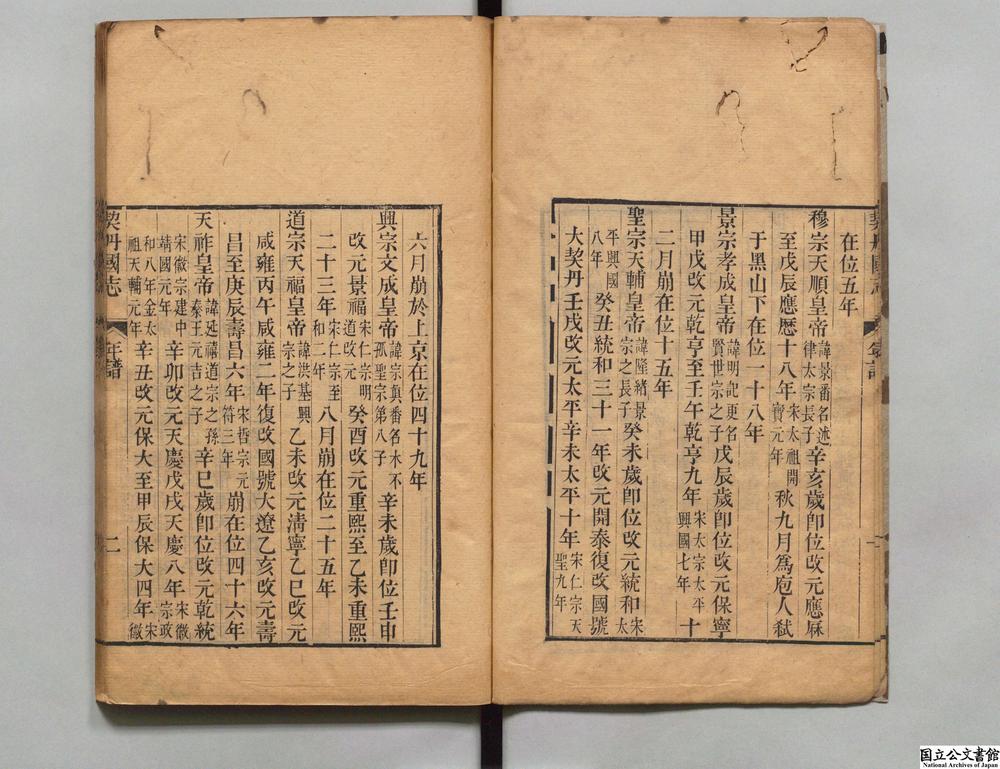 在位五年
穆宗天順皇帝諱景番名述律太宗長子辛亥歲卽位改元應厤
至戊辰應厯十八年宋太祖開寶元年秋九月爲庖人弑
于黑山下在位一十八年
景宗孝成皇帝諱明記更名賢世宗之子戊辰歲卽位改元保寧
甲戌改元乾亨至壬午乾亨九年宋太宗太平興國七年十
二月崩在位十五年
聖宗天輔皇帝諱隆緒景宗之長子癸未歲卽位改元統和宋太
平興國八年癸丑統和三十一年改元開泰復改國號
大契丹壬戌改元太平辛未太平十年宋仁宗天聖九年
六月崩於上京在位四十九年
興宗文成皇帝諱宗真番名木不孤聖宗第八子辛未歲卽位壬申
改元景福宋仁宗明道改元癸酉改元重熙至乙未重熙
二十三年宋仁宗至和二年八月崩在位二十五年
道宗天福皇帝諱洪基興宗之子乙未改元淸寧乙巳改元
咸雍丙午咸雍二年復改國號大遼乙亥改元壽
昌至庚辰壽昌六年宋哲宗元符三年崩在位四十六年
天祚皇帝諱延禧道宗之孫秦王元吉之子辛巳歲卽位改元乾統
宋徽宗建中靖國元年辛卯改元天慶戊戌天慶八年宋徽宗政
和八年金太祖天輔元年辛丑改元保大至甲辰保大四年宋徽
契丹國志
年譜
二
国立公文書館
National Archives of Japan